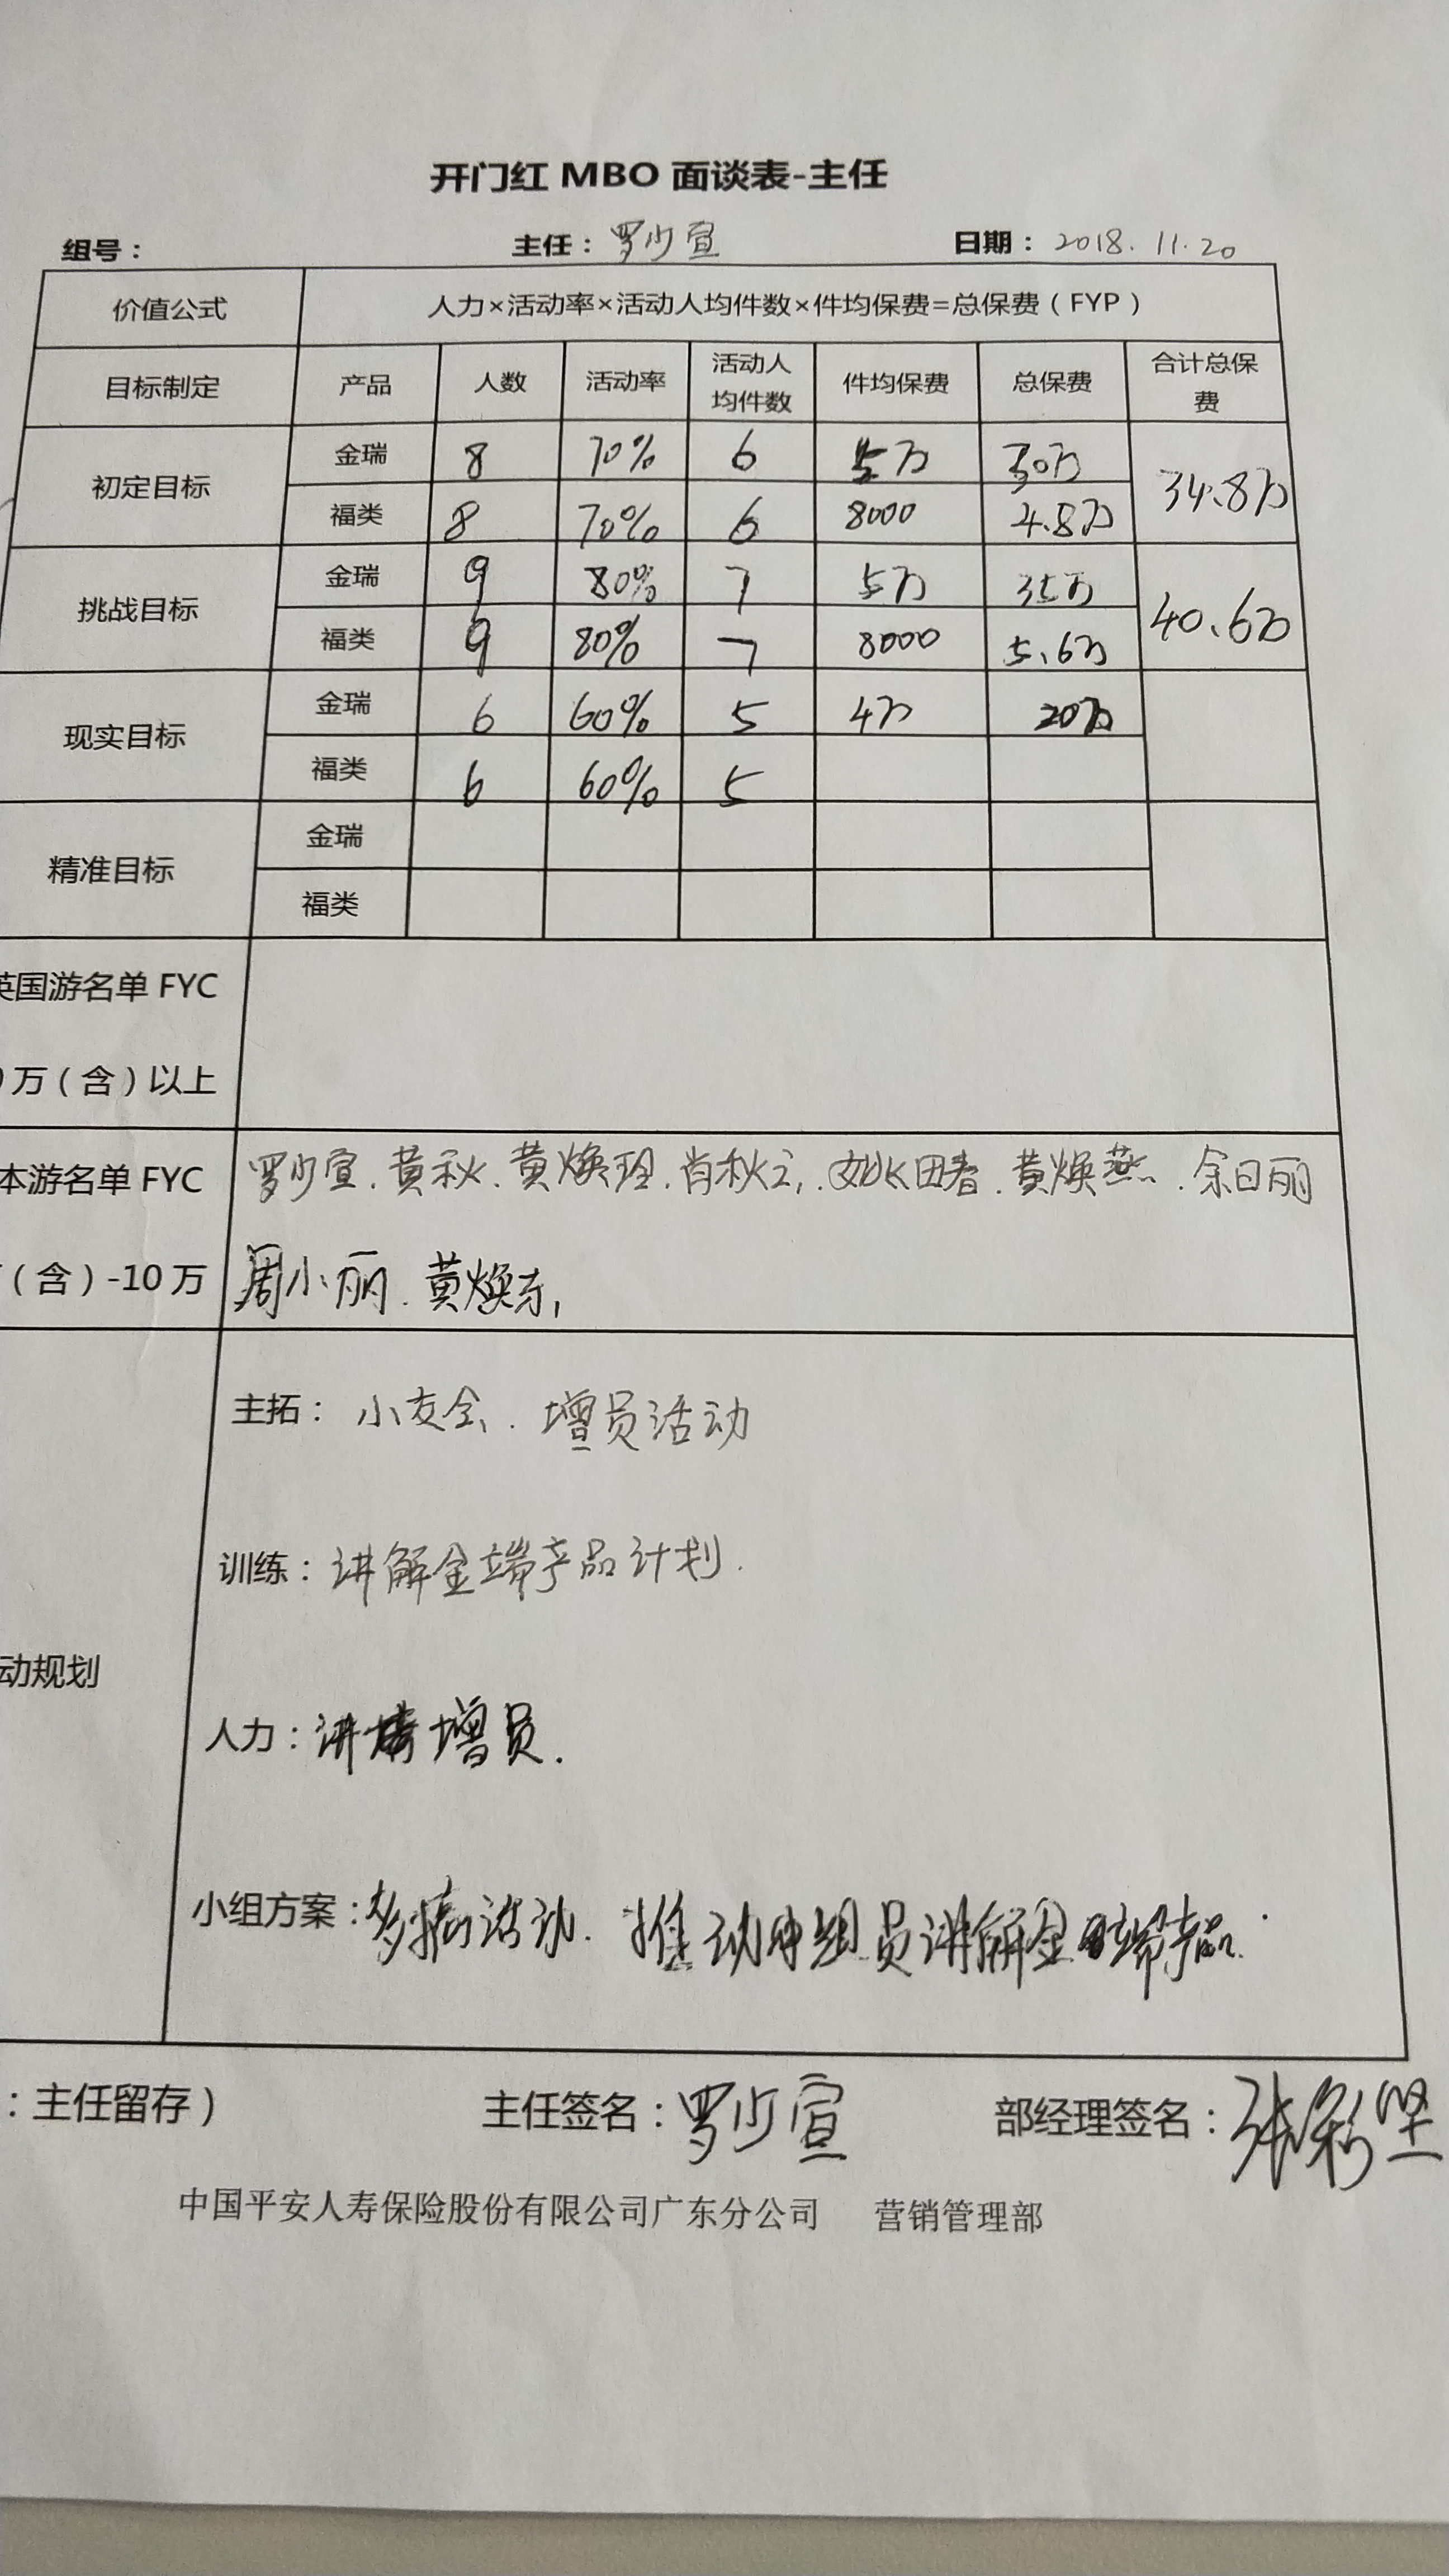 开门红 MBO 面谈表-主任
组号： 主任：罗少宣 日期：2018.11.20
价值公式 人力×活动率×活动人均件数×件均保费=总保费（FYP）
目标制定 产品 人数 活动率 活动人均件数 件均保费 总保费 合计总保费
初定目标 金瑞 8 70% 6 5万 30万 34.8万
福类 8 70% 6 8000 4.8万
挑战目标 金瑞 9 80% 7 5万 35万 40.6万
福类 9 80% 7 8000 5.6万
现实目标 金瑞 6 60% 5 4万 20万
福类 6 60% 5
精准目标 金瑞
福类
英国游名单 FYC
万（含）以上
本游名单 FYC 罗少宣.黄秋.黄焕玲.肖秋云.黄焕燕.余日丽
（含）-10 万 周小丽.黄焕东,
主拓：小友会.增员活动
训练：讲解金瑞产品计划.
动规划
人力：讲 增员.
小组方案：多搞活动.推动 组员讲解金瑞产品.
：主任留存） 主任签名：罗少宣 部经理签名：张彩坚
中国平安人寿保险股份有限公司广东分公司 营销管理部